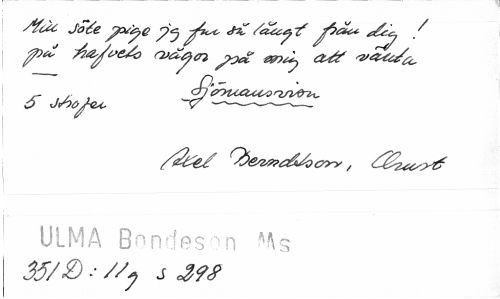 Min söte pige jg far så långt från dig!
på hafvets vågor på mig att vänta
5 strofer
Sjömansvisan
Axel Berndtson, Orust
ULMA Bondeson Ms
351 D: 11 g s 298